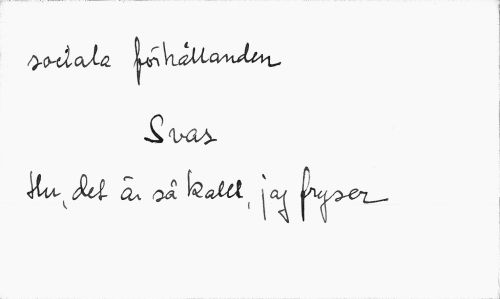 sociala förhållanden
Svas
Hu, det är så kallt, jag fryser